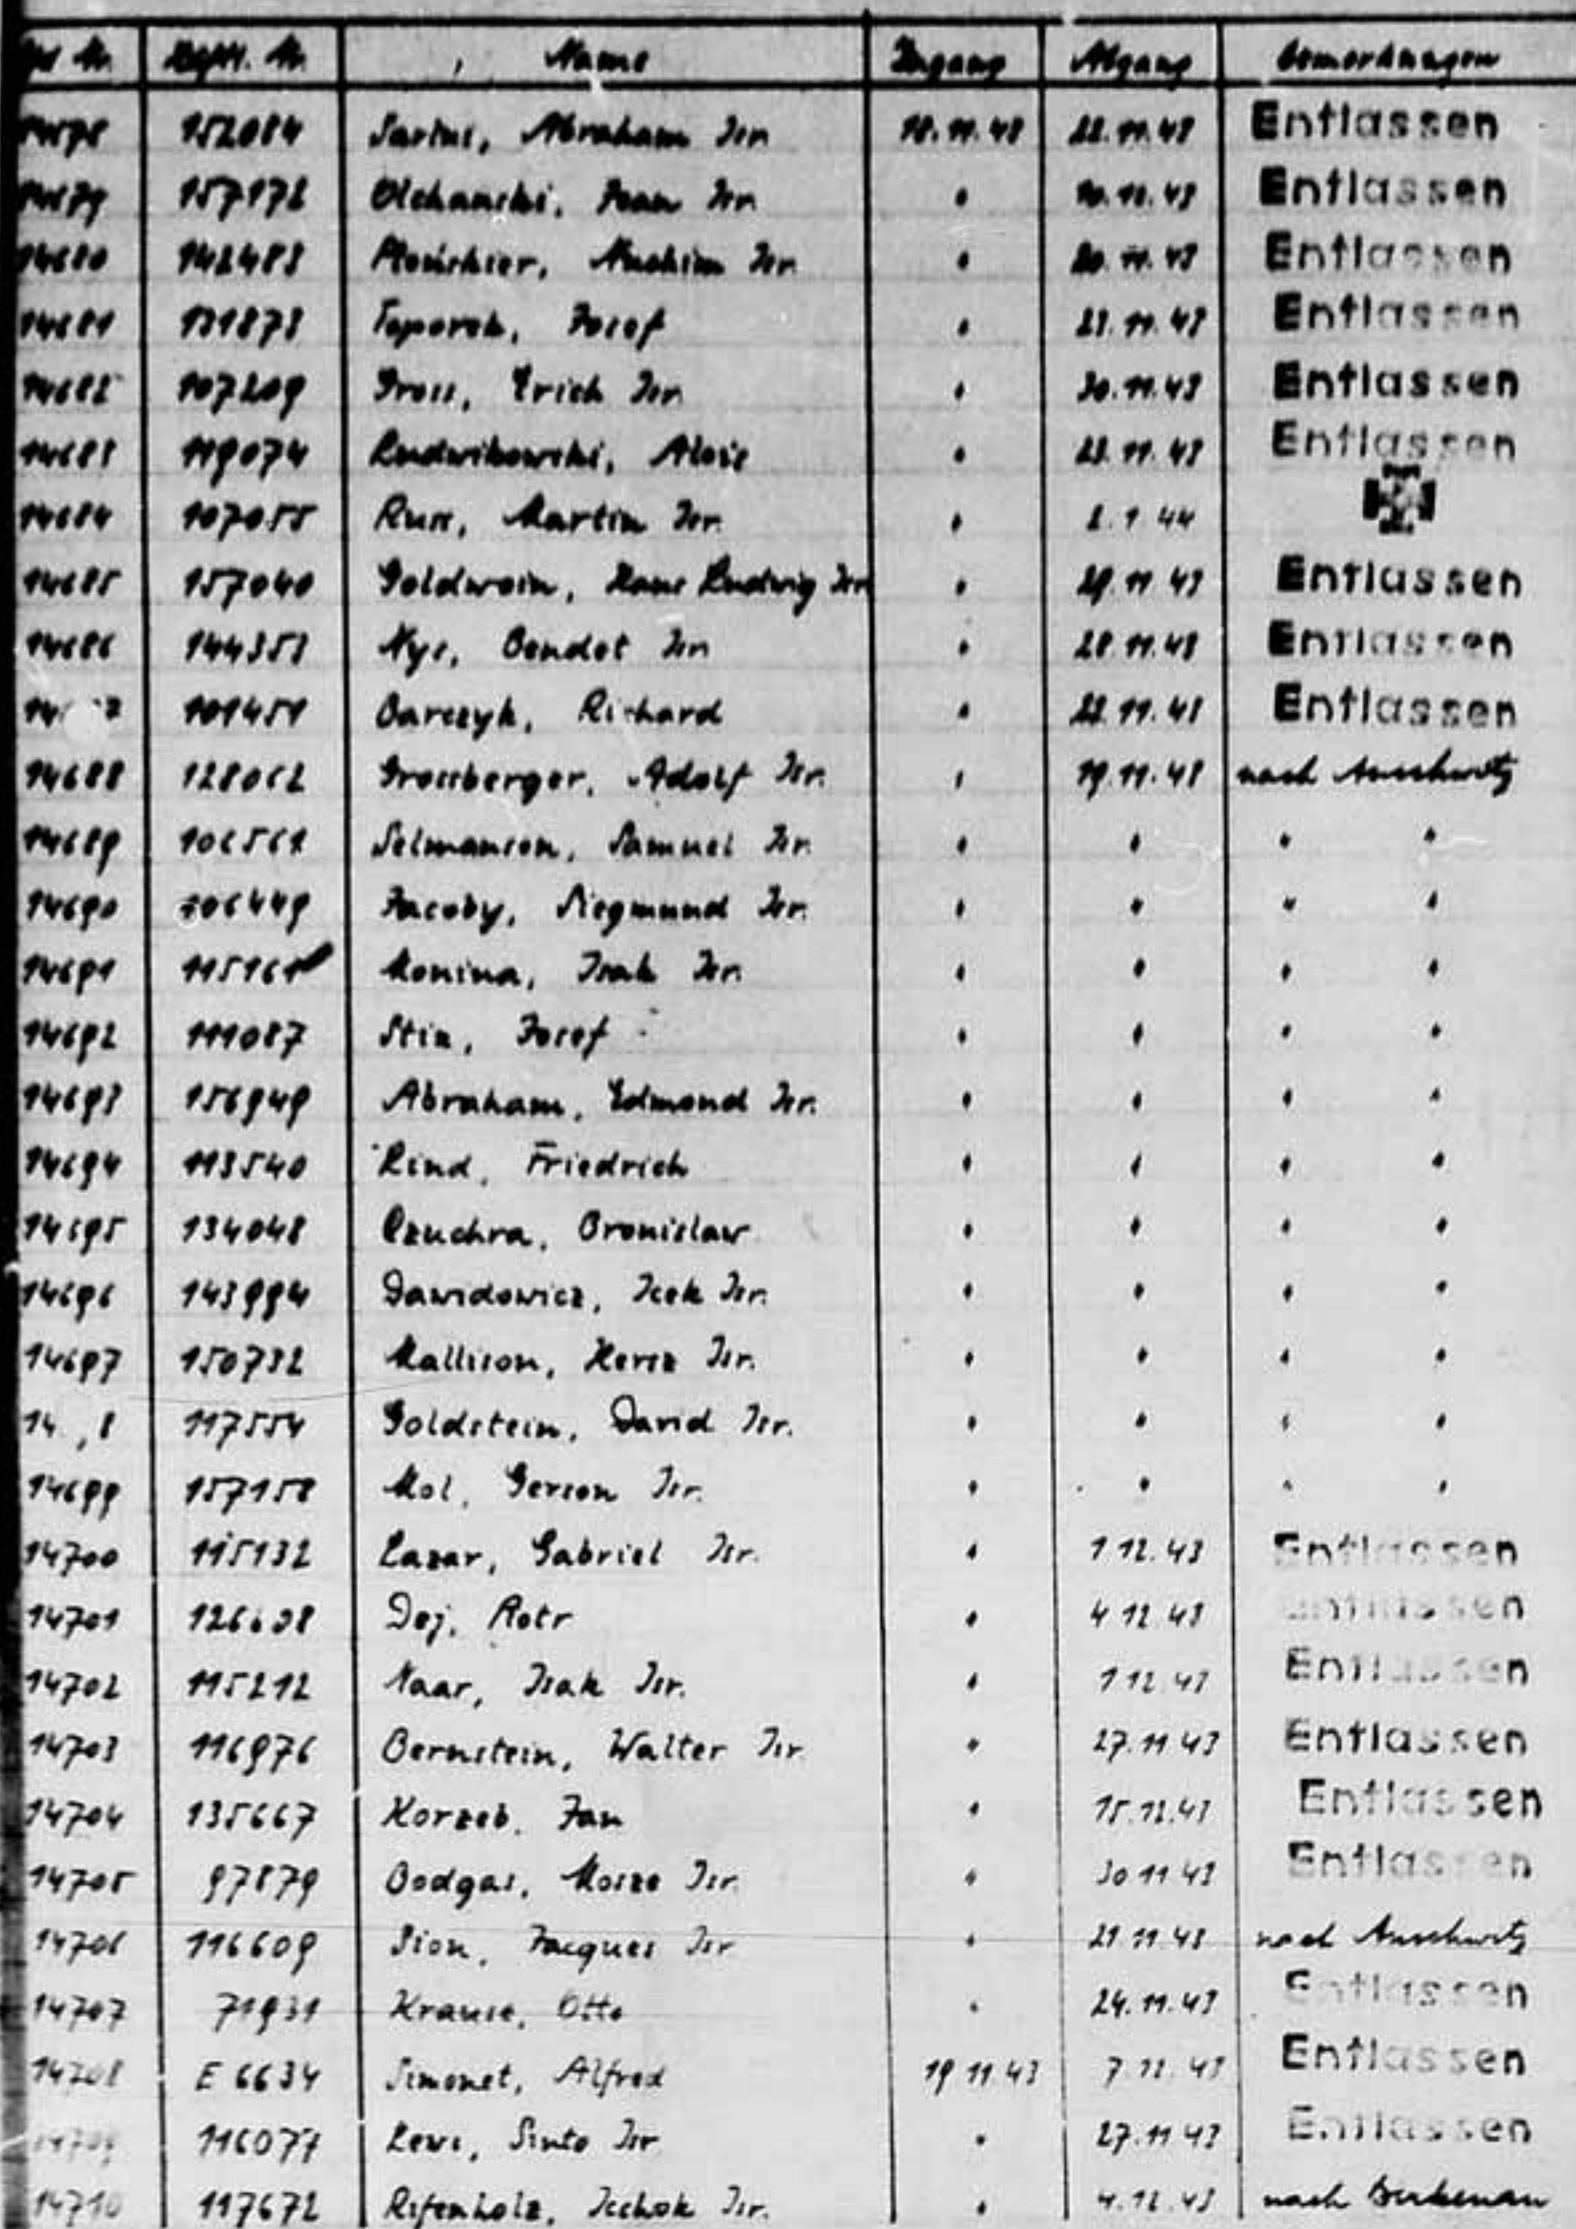 Name Zugang Abgang Bemerkungen
152084 Abraham Isr. 18.11.43 Entlassen
157172 Isr. " Entlassen
14680 142483 Isr. " Entlassen
14681 131873 Josef " 23.11.43 Entlassen
14682 107209 Gross, Erich Isr. " 30.11.43 Entlassen
14683 119074 Ludwikowski, Alois " 23.11.43 Entlassen
14684 107055 Russ, Martin Isr. " 2.1.44
14685 157040 Goldwein, Hans Ludwig Isr. " 29.11.43 Entlassen
14686 144353 Nys, Bendet Isr. " Entlassen
101451 Barczyk, Richard " Entlassen
14688 128062 Grossberger, Adolf Isr. " 19.11.43 nach Auschwitz
14689 106561 Selmanson, Samuel Isr. " " " "
14690 106449 Jacoby, Siegmund Isr. " " " "
14691 115161 Monina, Isak Isr. " " " "
14692 111087 Stix, Josef " " " "
14693 156949 Abraham, Edmond Isr. " " " "
14694 113540 Rind, Friedrich " " " "
14695 134048 Czuchra, Bronislaw " " " "
14696 143994 Dawidowicz, Icek Isr. " " " "
14697 150732 Mallison, Hersz Isr. " " " "
117554 Goldstein, David Isr. " " " "
14699 157158 Mol, Gerson Isr. " " " "
14700 115132 Lazar, Gabriel Isr. " 1.12.43 Entlassen
14701 Dej, Piotr " 4.12.43 Entlassen
14702 115212 Naar, Isak Isr. " 1.12.43 Entlassen
14703 116976 Bernstein, Walter Isr. " 27.11.43 Entlassen
14704 135667 Korzeb, Jan " 15.12.43 Entlassen
14705 97879 Bodgas, Mosze Isr. " 30.11.43 Entlassen
14706 116609 Sion, Jacques Isr. " nach Auschwitz
14707 71931 Krause, Otto " 24.11.43 Entlassen
14708 E 6634 Simonet, Alfred 19.11.43 7.12.43 Entlassen
14709 116077 Lewi, Sinto Isr. " 27.11.43 Entlassen
14710 117672 Rifenholz, Icchok Isr. " 4.12.43 nach Birkenau